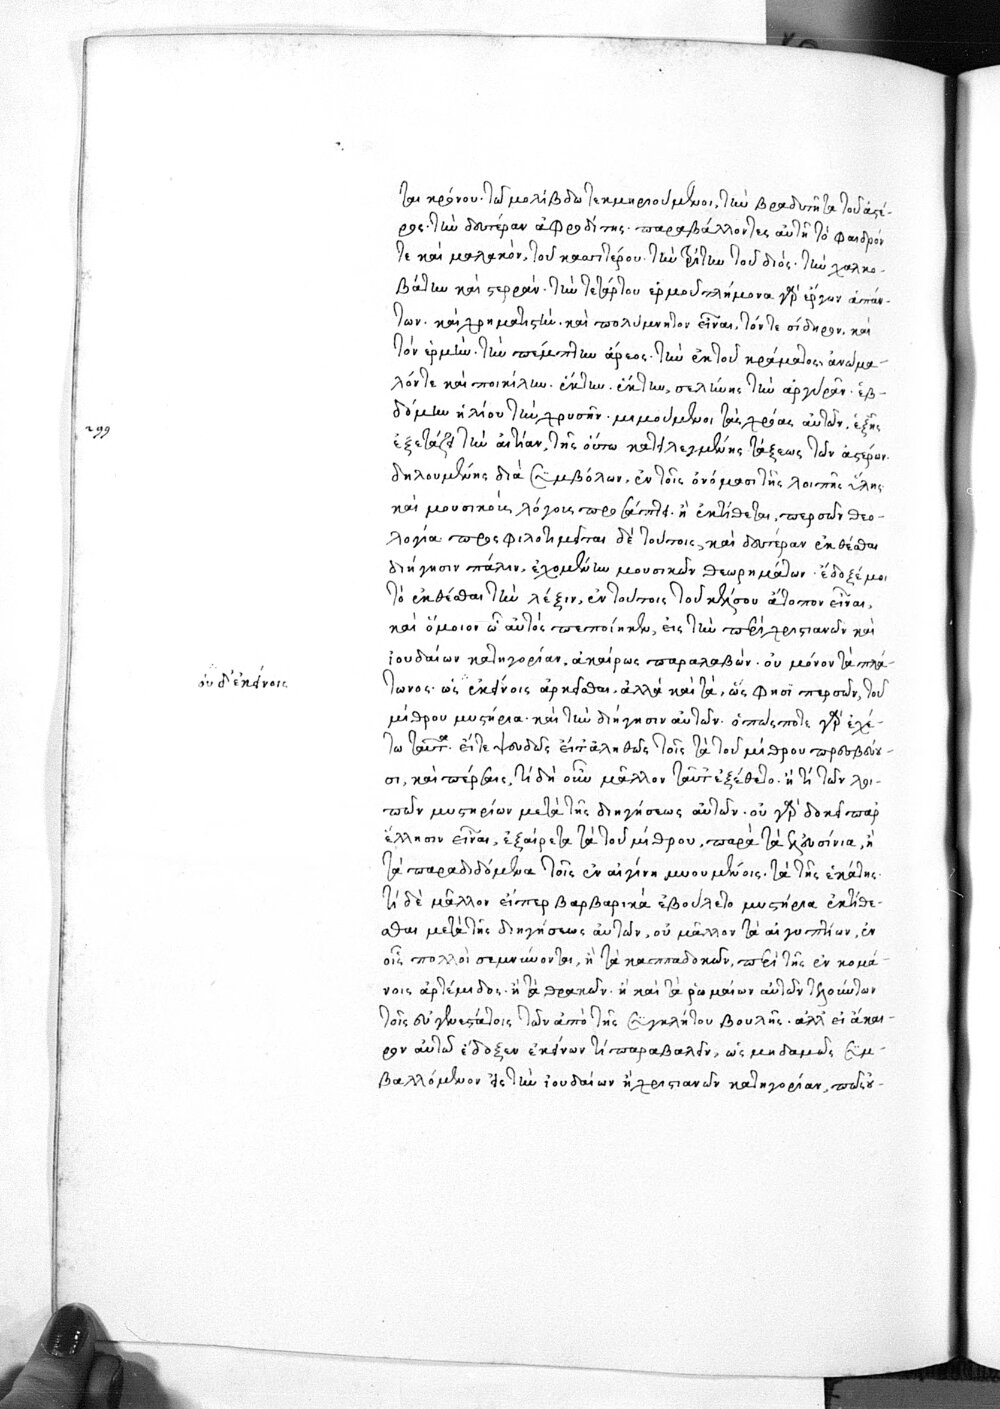 ται κρόνου· τῷ μολίβδῳ τεκμηριούμενοι, τὴν βραδυτῆτα τοῦ ἀστέ-
ρος· τὴν δευτέραν ἀφροδίτης· παραβάλλοντες αὐτῇ τὸ φαιδρόν
τε καὶ μαλακὸν, τοῦ κασσιτέρου· τὴν τρίτην τοῦ διός· τὴν χαλκο-
βάτην καὶ στερράν· τὴν τετάρτου ἑρμοῦ· τλήμονα γὰρ ἔργων ἁπάν-
των· καὶ χρηματιστὴν· καὶ πολύμνητον εἶναι, τόν τε σίδηρον, καὶ
τὸν ἑρμῆν· τὴν πέμπτην ἄρεος· τὴν ἐκ τοῦ κράματος, ἀνώμα-
λόν τε καὶ ποικίλην· ἕκτην· ἕκτην, σελήνης τὴν ἀργυρᾶν· ἑβ-
δόμην ἡλίου τὴν χρυσῆν· μιμούμενοι τὰς χρόας αὐτῶν, ἑξῆς
299
ἐξετάζει τὴν αἰτίαν, τῆς οὕτω κατειλεγμένης τάξεως τῶν ἀστέρων
δηλουμένης διὰ συμβόλων, ἐν τοῖς ὀνόμασι τῆς λοιπῆς ὕλης
καὶ μουσικοὺς λόγους προσάπτει· ἣ ἐκτίθεται, περσῶν θεο-
λογία· προσφιλοτιμεῖται δὲ τούτοις, καὶ δευτέραν ἐκθέσθαι
διήγησιν πάλιν, ἐχομένην μουσικῶν θεωρημάτων· ἔδοξέ μοι
τὸ ἐκθέσθαι τὴν λέξιν, ἐν τούτοις τοῦ κέλσου ἄτοπον εἶναι,
καὶ ὅμοιον ᾧ αὐτὸς πεποίηκεν, εἰς τὴν περὶ χριστιανῶν καὶ
ἰουδαίων κατηγορίαν, ἀκαίρως παραλαβὼν· οὐ μόνον τὰ πλά-
οὐδ' ἐκείνοις
τωνος· ὡς ἐκείνοις ἀρκεῖσθαι, ἀλλὰ καὶ τὰ, ὥς φησι περσῶν, τοῦ
μίθρου μυστήρια· καὶ τὴν διήγησιν αὐτῶν· ὅπως ποτὲ γὰρ ἐχέ-
τω ταῦτα· εἴτε ψευδῶς εἴτ' ἀληθῶς τοῖς τὰ τοῦ μίθρου πρεσβεύου-
σι, καὶ πέρσαις, τί δὴ οὖν μᾶλλον ταῦτ' ἐξέθετο· ἤ τι τῶν λοι-
πῶν μυστηρίων μετὰ τῆς διηγήσεως αὐτῶν· οὐ γὰρ δοκεῖ παρ'
ἕλλησιν εἶναι, ἐξαίρετα τὰ τοῦ μίθρου, παρὰ τὰ ἐλευσίνια, ἢ
τὰ παραδιδόμενα τοῖς ἐν αἰγίνῃ μυουμένοις· τὰ τῆς ἑκάτης·
τί δὲ μᾶλλον εἴπερ βαρβαρικὰ ἐβούλετο μυστήρια ἐκτίθε-
σθαι μετὰ τῆς διηγήσεως αὐτῶν, οὐ μᾶλλον τὰ αἰγυπτίων, ἐν
οἷς πολλοὶ σεμνύονται, ἢ τὰ καππαδοκῶν, περὶ τῆς ἐν κομά-
νοις ἀρτέμιδος· ἢ τὰ θρακῶν· ἢ καὶ τὰ ῥωμαίων αὐτῶν τελούντων
τοῖς εὐγενεστάτοις τῶν ἀπὸ τῆς συγκλήτου βουλῆς· ἀλλ' εἰ ἄκαι-
ρον αὐτῷ ἔδοξεν ἐκείνων τι παραβαλεῖν, ὡς μηδαμῶς συμ-
βαλλόμενον εἰς τὴν ἰουδαίων ἢ χριστιανῶν κατηγορίαν, πῶς ου-